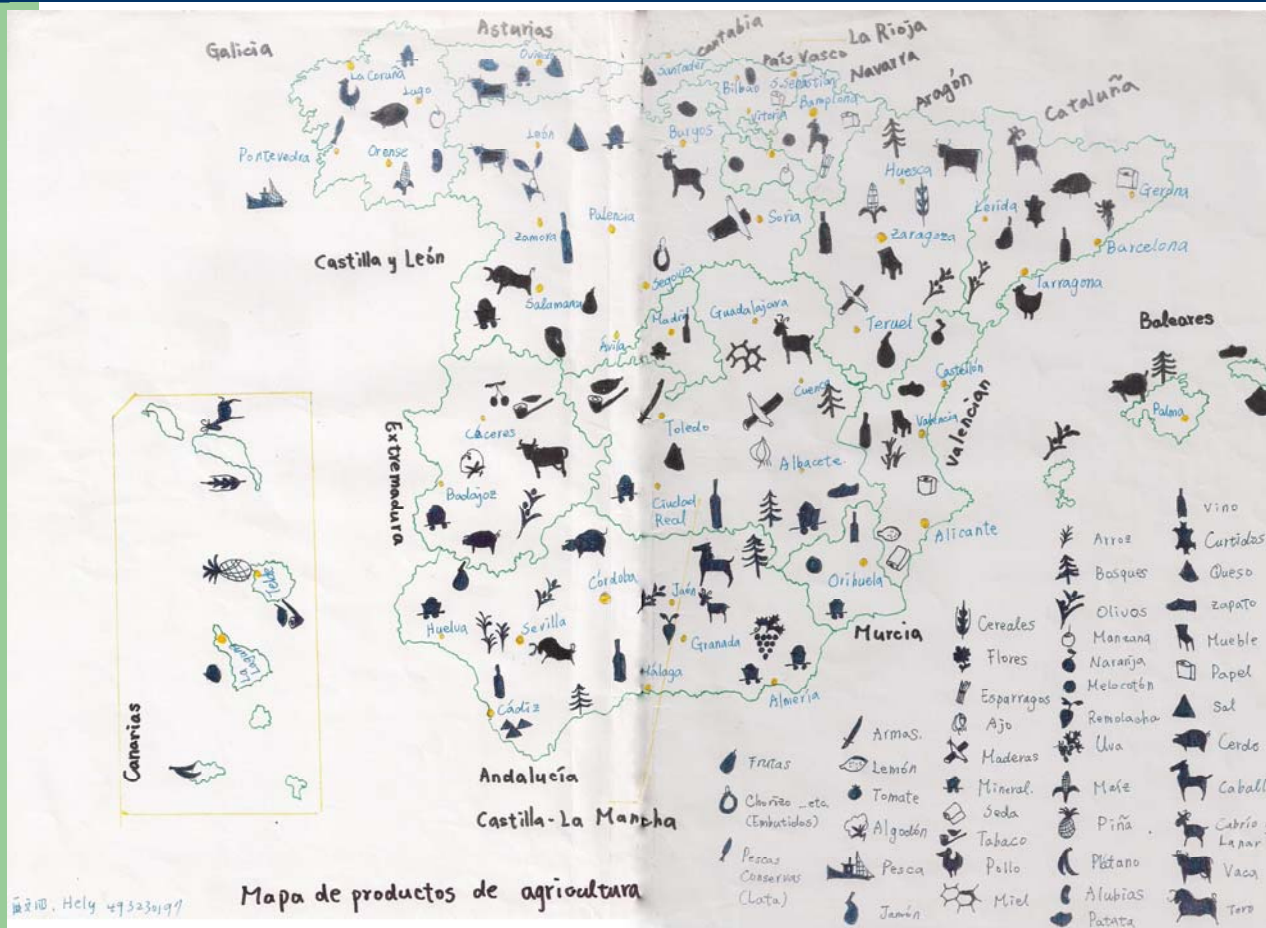 Galicia
Asturias
cantabia
La Rioja
País Vasco
Navarra
Aragón
Cataluña
La Coruña
Lugo
Pontevedra
Orense
Oviedo
Santader
Bilbao
S. Sebastián
Vitoria
Bamplona
León
Burgos
Huesca
Gerona
Zamora
Palencia
Soria
Zaragoza
Lérida
Barcelona
Castilla y León
Salamana
Segovia
Tarragona
Ávila
Madrid
Guadalajara
Teruel
Baleares
Cuenca
Castellón
Palma
Extremadura
Cáceres
Toledo
Valencia
Valencian
Badajoz
Ciudad
Real
Albacete.
Alicante
Córdoba
Jaén
Orihuela
Huelva
Sevilla
Granada
Murcia
Málaga
Almería
Cádiz
Telde
La Laguna
Canarias
Andalucía
Castilla-La Mancha
Mapa de productos de agricultura
Hely 493230197
Frutas
Chorizo _etc.
(Embutidos)
Pescas
Conservas
(Lata)
Armas.
Lemón
Tomate
Algodón
Pesca
Jamón
Cereales
Flores
Esparragos
Ajo
Maderas
Mineral.
Seda
Tabaco
Pollo
Miel
Arroz
Bosques
Olivos
Manzana
Naranja
Melocotón
Remolacha
Uva
Maíz
Piña
Plátano
Alubias
Patata
Vino
Curtidos
Queso
Zapato
Mueble
Papel
Sal
Cerdo
Caball
Cabrío
Lanar
Vaca
Toro